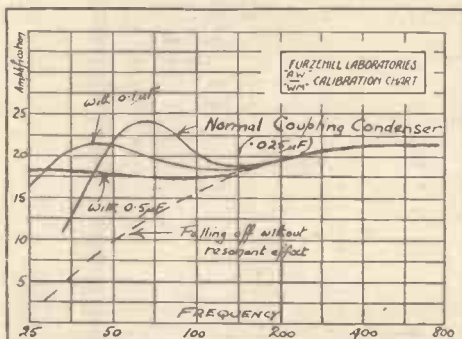 Amplification
25
20
15
10
5
FURZEHILL LABORATORIES
"AW"
"WM" CALIBRATION CHART
With 0.1µF
Normal Coupling Condenser
(.025µF)
With 0.5µF
Falling off without
resonant effect
FREQUENCY
25 50 100 200 400 800